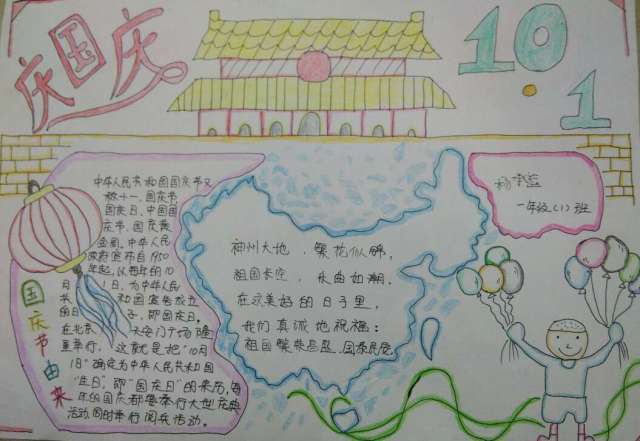 庆国庆
10.1
中华人民共和国国庆节又
称十一、国庆节、
国庆日、中国国
庆节、国庆黄
金周。中华人民
政府宣布自1950
年起，以每年的10
月1日，为中华人民
共和国宣告成立
的日子，即国庆日。
在北京天安门广场隆
重举行，"这就是把"10月
1日"确定为中华人民共和国
"生日"，即"国庆日"的来历，每
年的国庆都要举行大型庆典
活动，同时举行阅兵活动。
国庆节由来
神州大地，繁花似锦，
祖国长空，乐曲如潮。
在这美好的日子里，
我们真诚地祝福：
祖国繁荣昌盛，国泰民安。
一年级（1）班